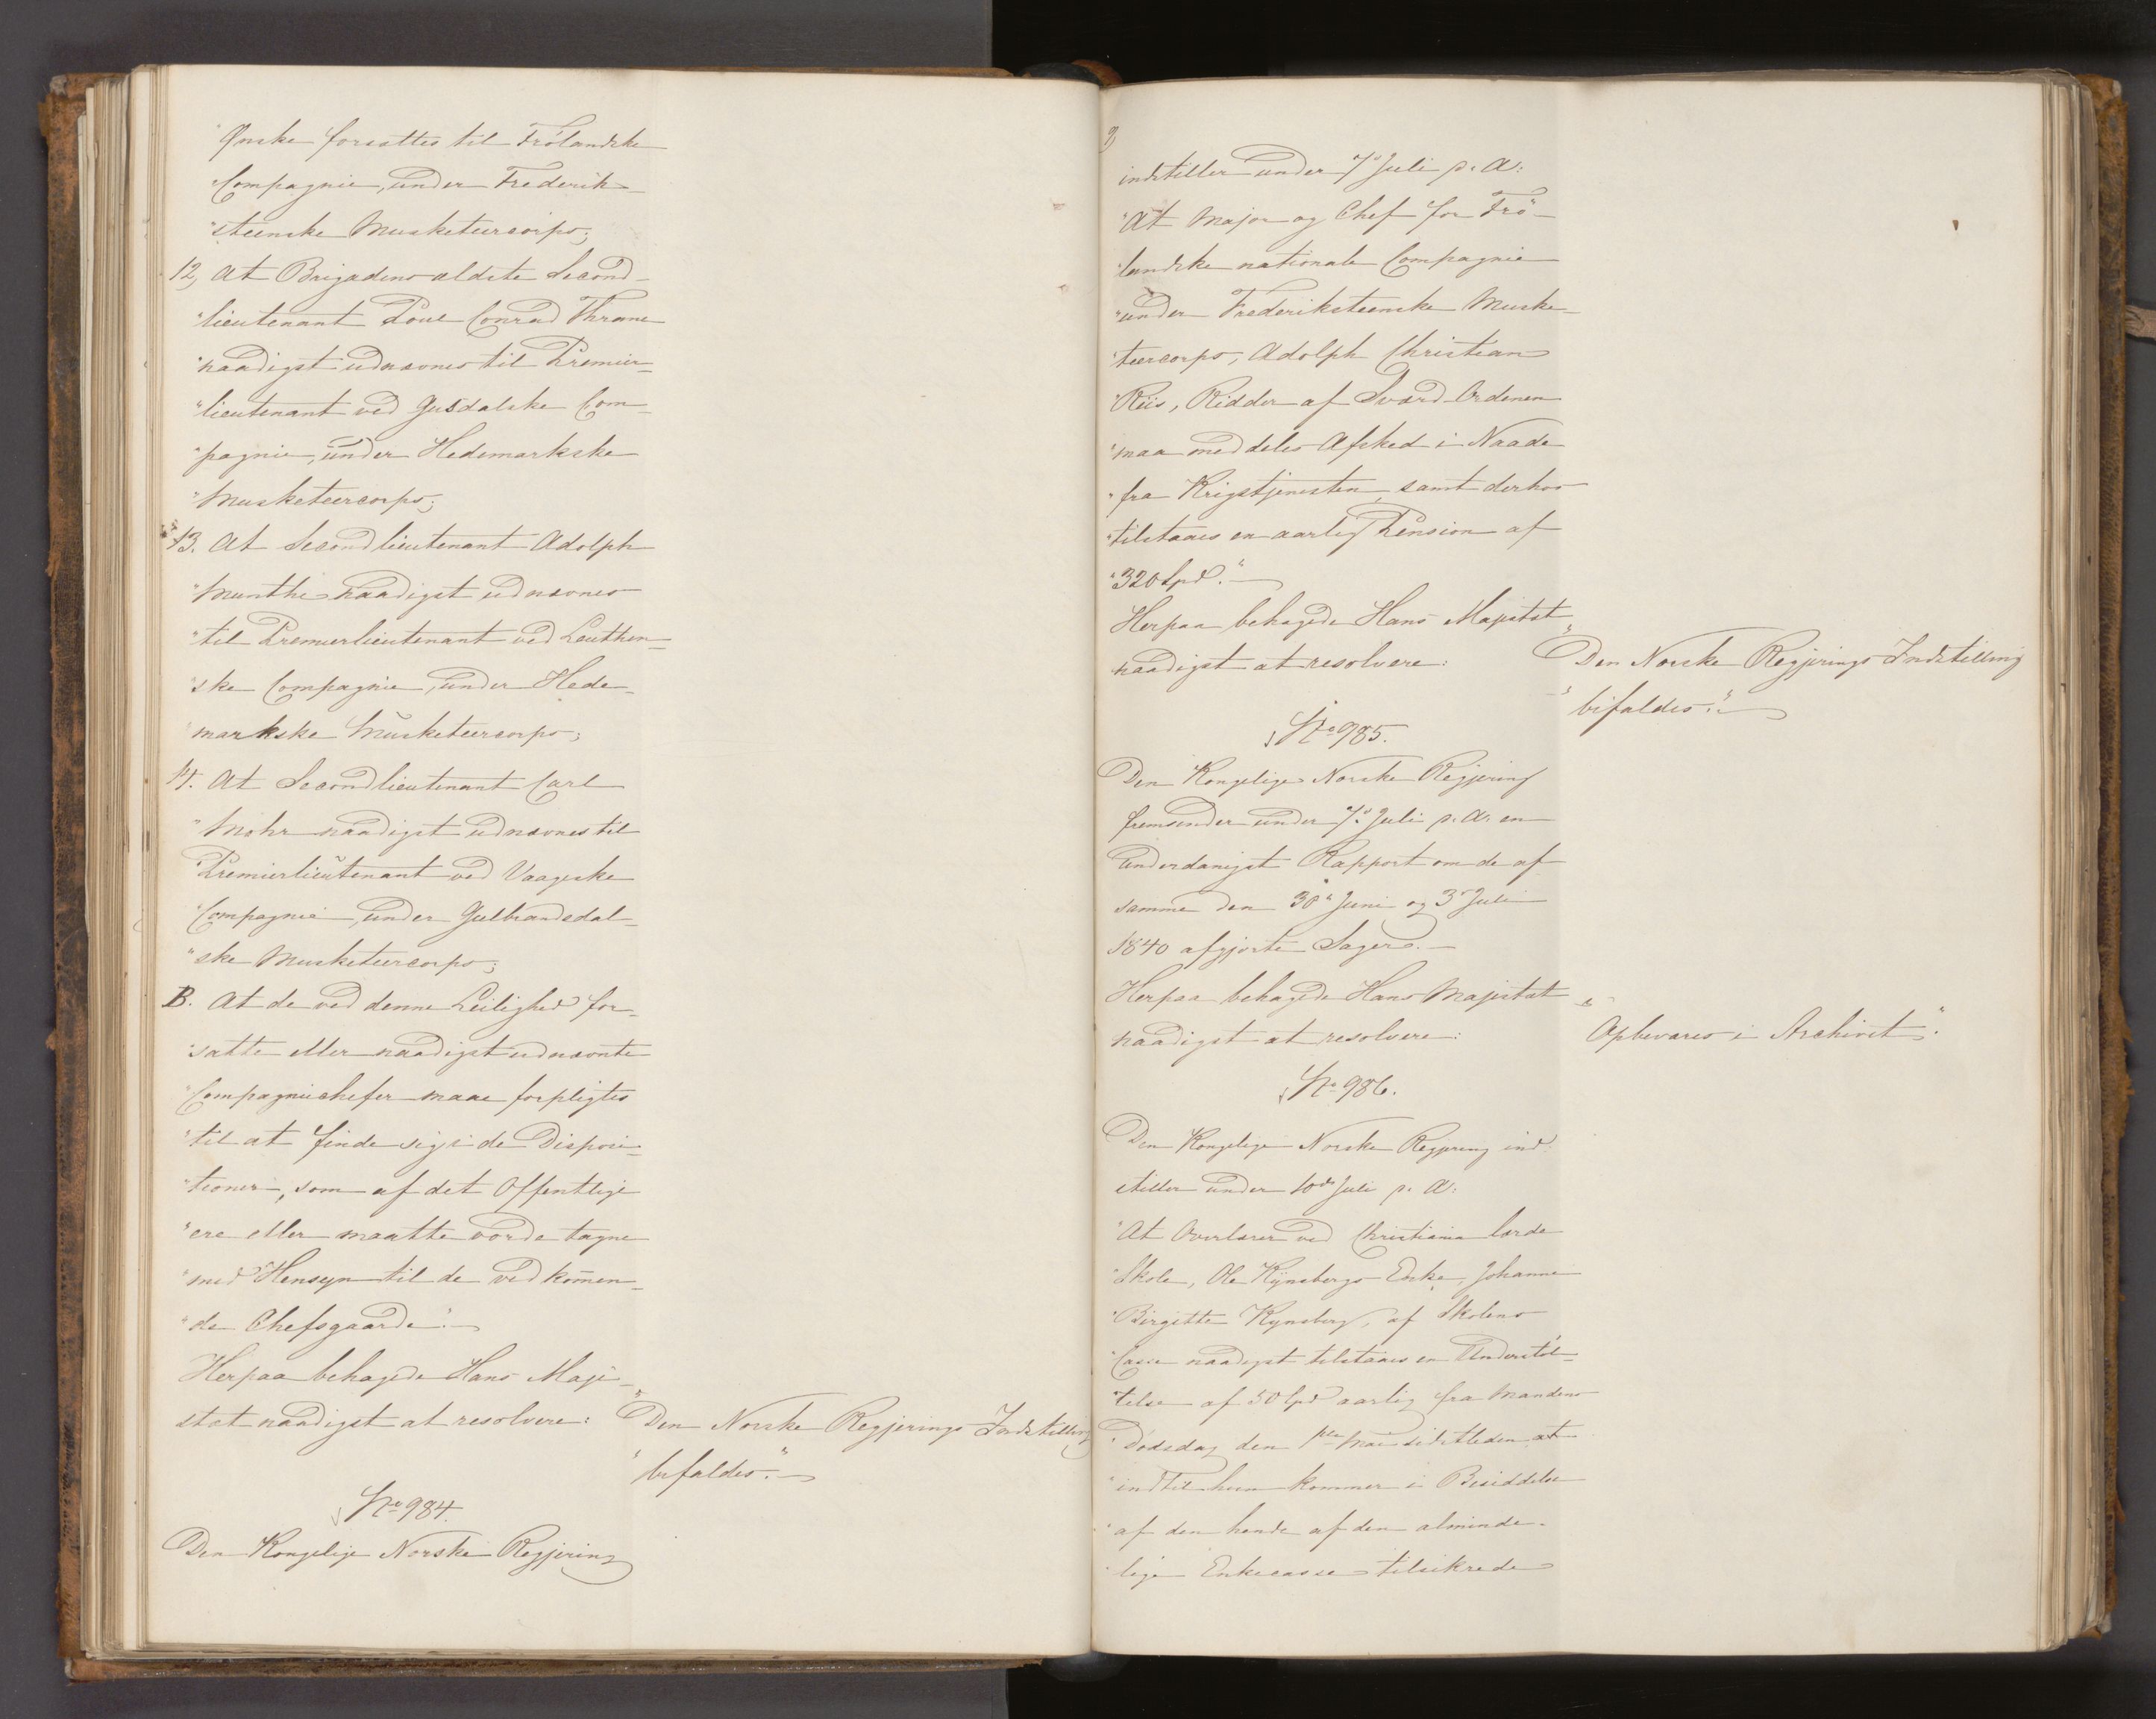 "Ønske forsættes til Trölandske
"Compagnie, under Frederik-
"steenske Musketeercorps;
12, At Brigadens ældste Second-
"lieutenant Poul Conrad Thrane
"naadigst udnævnes til Premier-
"lieutenant ved Gusdalske Com-
"pagnie, under Hedemarkske
"Musketeercorps;
13. At Secondlieutenant Adolph
"Munthe naadigst udnævnes
"til Premierlieutenant ved Leuthen-
"ske Compagnie, under Hede-
"markske Musketeercorps;
14. At Secondlieutenant Carl
"Mohr naadigst udnævnes til
"Premierlieutenant ved Vaageske
"Compagnie, under Gulbrandsdal-
"ske Musketeercorps;
B. At de ved denne Leilighed for-
"satte eller naadigst udnævnte
"Compagniechefer maae forpligtes
"til at finde sig i de Disposi-
"tioner, som af det Offentlige
"ere eller maatte vorde tagne
"med Hensyn til de vedkom̄en-
"de Chefsgaarde."
Herpaa behagede Hans Maje-
stæt naadigst at resolvere:
"Den Norske Regjerings Indstilling
"bifaldes."
No 984.
Den Kongelige Norske Regjering
indstiller under 7de Juli p. A:
"At Major og Chef for Trö-
"landske nationale Compagnie
"under Frederiksteenske Muske-
"teercorps, Adolph Christian
"Riis, Ridder af Sværd-Ordenen
"maa meddeles Afsked i Naade
"fra Krigstjenesten, samt derhos
"tilstaaes en aarlig Pension af
"320 Spd."
Herpaa behagede Hans Majestæt
naadigst at resolvere:
"Den Norske Regjerings Indstilling
"bifaldes."
No 985.
Den Kongelige Norske Regjering
fremsender under 7de Juli p. A. en
underdanigst Rapport om de af
samme den 30te Juni og 3die Juli
1840 afgjorte Sager.
Herpaa behagede Hans Majestæt
naadigst at resolvere:
"Opbevares i Archivet".
No 986.
Den Kongelige Norske Regjering ind-
stiller under 10de Juli p. A:
"At Overlærer ved Christiania lærde
"Skole, Ole Kynsbergs Enke, Johanne
"Birgitte Kynsberg, af Skolens
"Casse naadigst tilstaaes en Understöt-
"telse af 50 Spd aarlig fra Mandens
"Dödsdag den 1ste Mai sidstleden at
"indtil hun kommer i Besiddelse
"af den hende af den alminde-
"lige Enkecasse tilsikrede